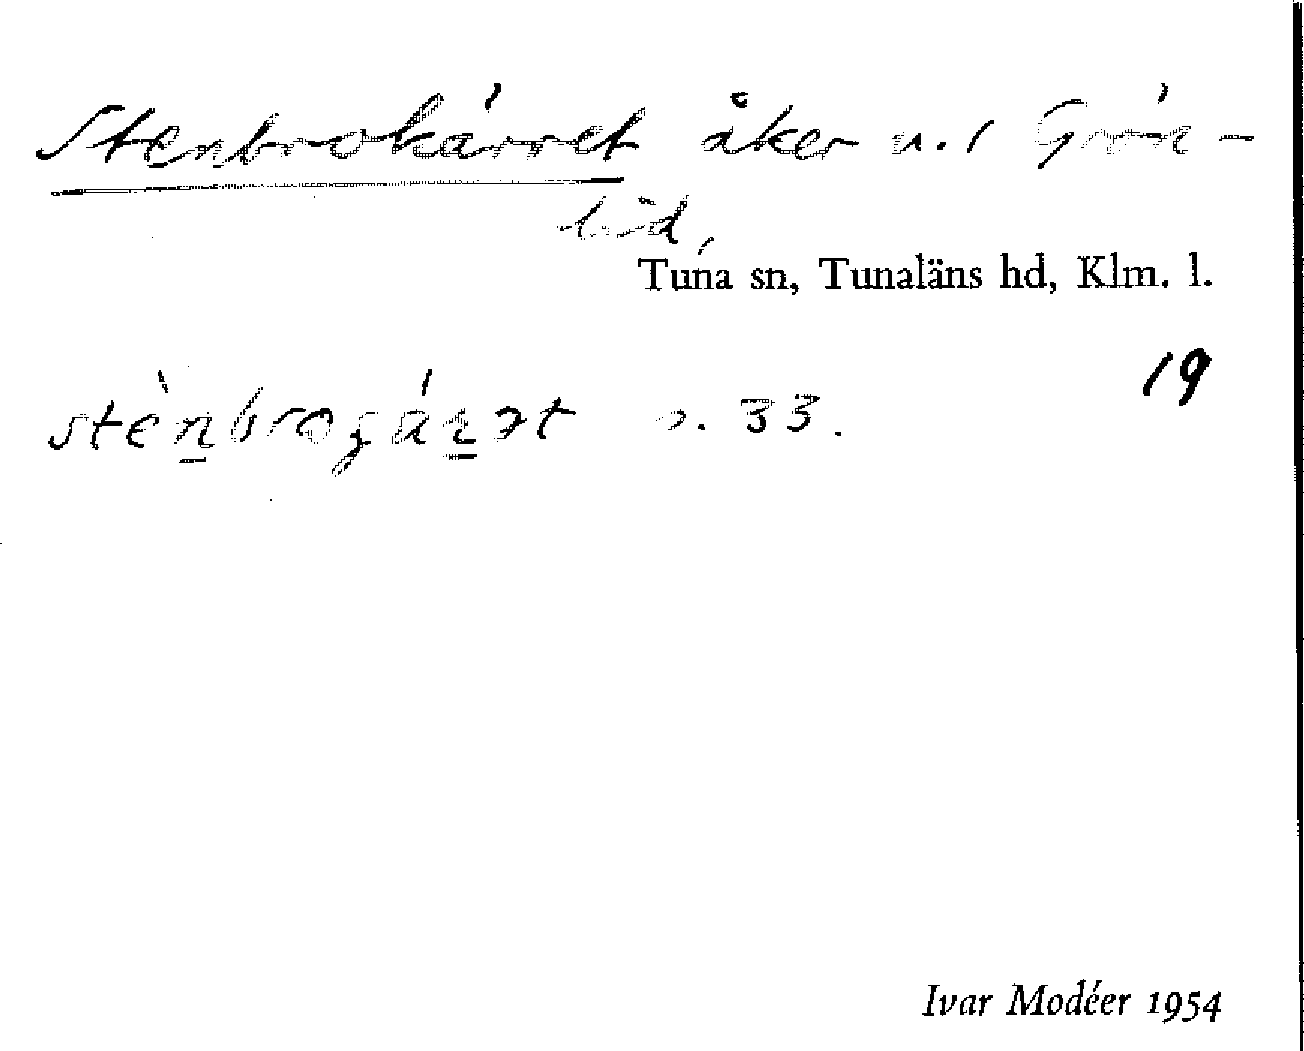 Stenbrokärret åker u. / Grön-
lid,
Tuna sn, Tunaläns hd, Klm. l.
19
s. 33.
Ivar Modéer 1954